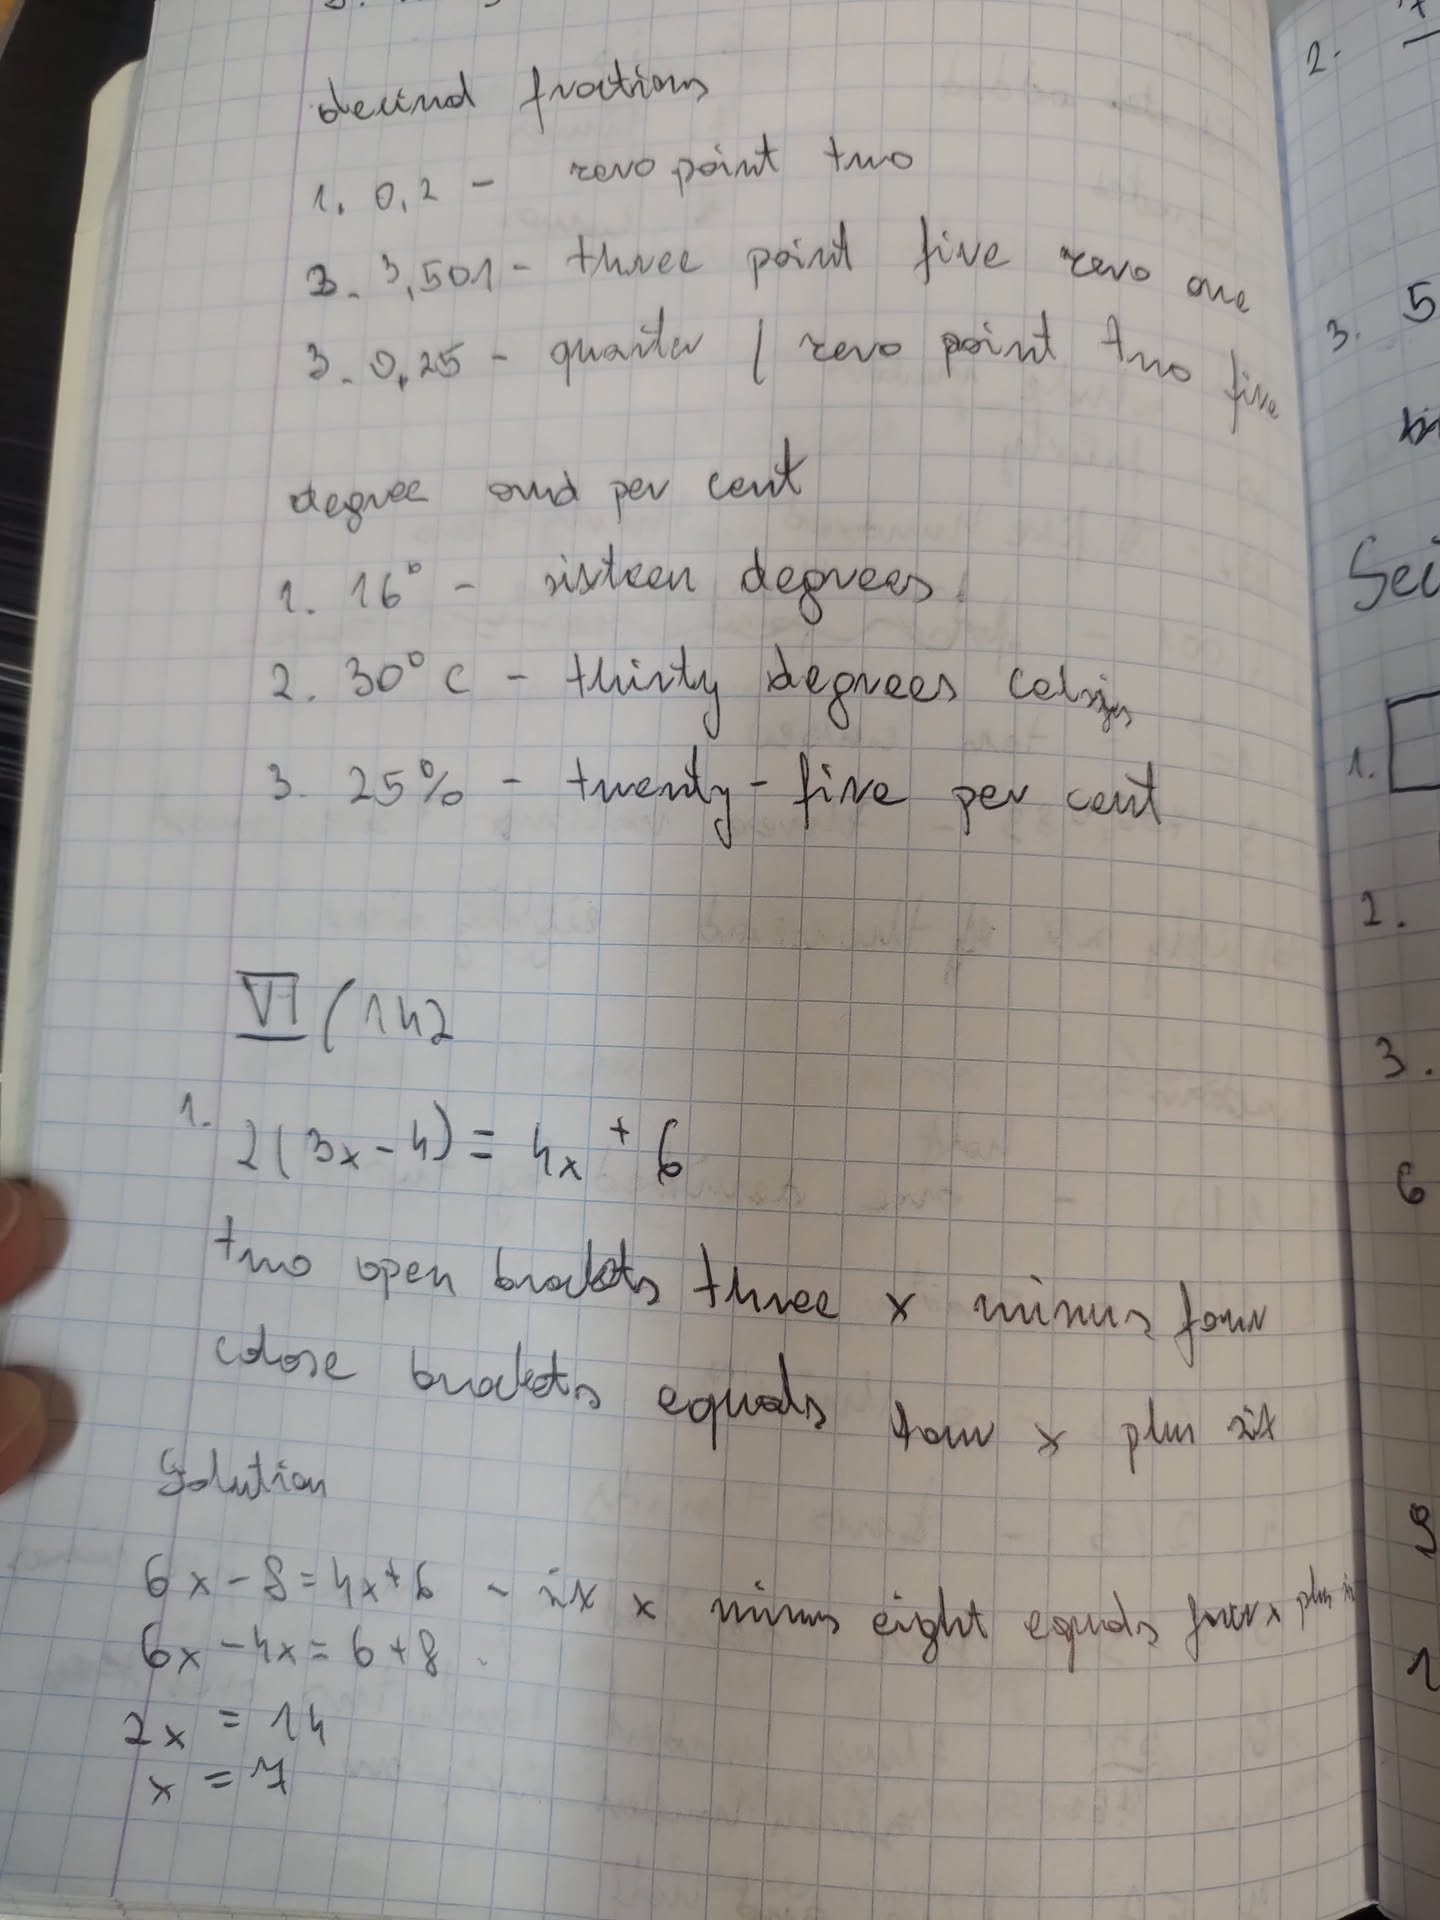 decimal fractions
1. 0,2 - zero point two
3. 3,501 - three point five zero one
3. 0,25 - quarter / zero point two five
degree and per cent
1. 16° - sixteen degrees
2. 30°C - thirty degrees Celsius
3. 25% - twenty-five per cent
VI / 142
1. 2(3x-4) = 4x + 6
two open brackets three x minus four
close brackets equals four x plus six
Solution
6x-8=4x+6 - six x minus eight equals four x plus six
6x-4x=6+8
2x = 14
x = 7
2.
3. 5
1.
2.
3.
6
9
1